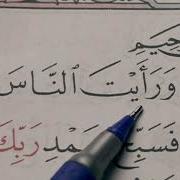 حِيمِ
وَرَأَيْتَ ٱلنَّاسَ
فَسَبِّحْ مْدِ رَبِّكَ